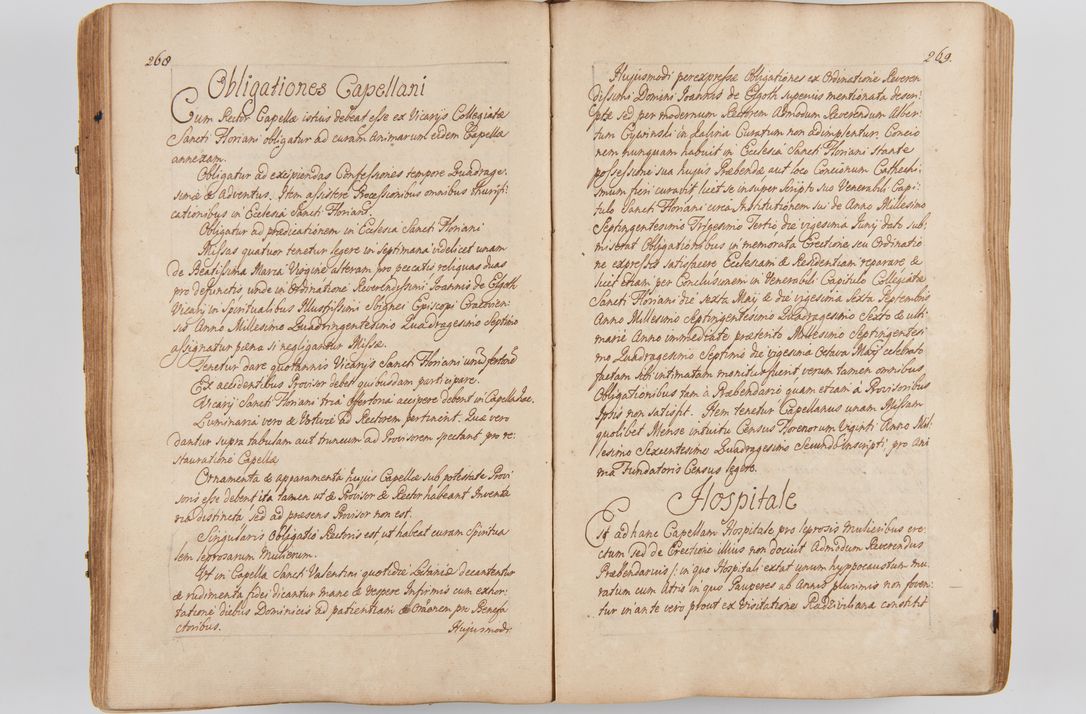 268
Obligationes Capellani
Cum Rector Capellæ istius debeat esse ex Vicarijs Collegiatæ
Sancti Floriani obligatur ad curam animarum eidem Capellæ
annexam.
Obligatur ad excipiendas Confessiones tempore Quadrage-
simæ & Adventus. Item assistere Processionibus omnibus thurifi-
cationibus in Ecclesia Sancti Floriani.
Obligatur ad prædicationem in Ecclesia Sancti Floriani
Missas quatuor tenetur legere in Septimana videlicet unam
de Beatissima Maria Virgine alteram pro peccatis reliquas duas
pro defunctis unde in Ordinatione Reverendissimi Ioannis de Elgoth
Vicarij in Spiritualibus Illustrissimi Sbignei Episcopi Cracovien-
sis Anno Millesimo Quadringentesimo Quadragesimo Septimo
assignatur pæna si negligantur Missæ.
Tenetur dare quotannis Vicarijs Sancti Floriani unũ fertonẽ
Ex accidentibus Provisor debet quibusdam participare.
Vicarij Sancti Floriani tria offertoria accipere debent in Capella hac.
Luminaria vero & Votivæ ad Rectorem pertinent. Quæ vero
dantur supra tabulam aut truncum ad Provisorem spectant pro re-
stauratione Capellæ
Ornamenta & apparamenta hujus Capellæ sub potestate Provi
soris esse debent ita tamen ut & Provisor & Rector habeant Inventa
ria distincta sed ad præsens Provisor non est.
Singularis Obligatio Rectoris est, ut habeat curam Spiritua
lem leprosarum Mulierum.
Ut in Capella Sancti Valentini quotidie Litaniæ decantentur
& rudimenta fidei dicantur mane & vespere Infirmis cum exhor-
tatione diebus Dominicis ad patientiam & Orãonem pro Benefa
ctoribus.
Hujusmodi
269
Hujusmodi perexpressæ Obligationes ex Ordinatione Reveren
dissimi Domini Ioannis de Elgoth superius mentionata descri-
ptæ sed per modernum Rectorem Admodum Reverendum Alber-
tum Cywinski in Zalesia Curatum non adimplentur. Concio
nem nunquam habuit in Ecclesia Sancti Floriani stante
possessione sua hujus Præbendæ aut loco Concionum Cathechi-
smum fieri curavit, licet se insuper Scripto suo Venerabili Capi-
tulo Sancti Floriani circa Institutionem sui de Anno Millesimo
Septingentesimo Trigesimo Tertio die vigesima Junij dato sub-
miserat Obligationibus in memorata Erectione seu Ordinatio
ne expressis satisfacere Ecclesiam & Residentiam reparare &
licet etiam per Conclusionem in Venerabili Capitulo Collegiatæ
Sancti Floriani die Sexta Maij & die vigesima Sexta Septembris
Anno Millesimo Septingentesimo Quadragesimo Sexto & ulti
marie Anno immediate præterito Millesimo Septingentesi
mo Quadragesimo Septimo die vigesima Octava Maij celebrato
factam sibi intimatam monitus fuerit verum tamen omnibus
Obligationibus tam à Præbendario quam etiam à Provisoribus
Ipsis non satisfit. Item tenetur Capellanus unam Missam
quolibet Mense intuitu Census Florenorum Viginti Anno Mil-
lesimo Sexcentesimo Quadragesimo Secundo inscripti, pro Ani
ma Fundatoris Census legere.
Hospitale
Est ad hanc Capellam Hospitale pro leprosis Mulieribus ere-
ctum sed de Erectione illius non docuit Admodum Reverendus
Præbendarius; in quo Hospitali extat unum hypocaustum mu-
ratum cum Atrio in quo Pauperes ab Annis plurimis non foven-
tur in ante vero prout ex Visitatione Radziviliana constitit